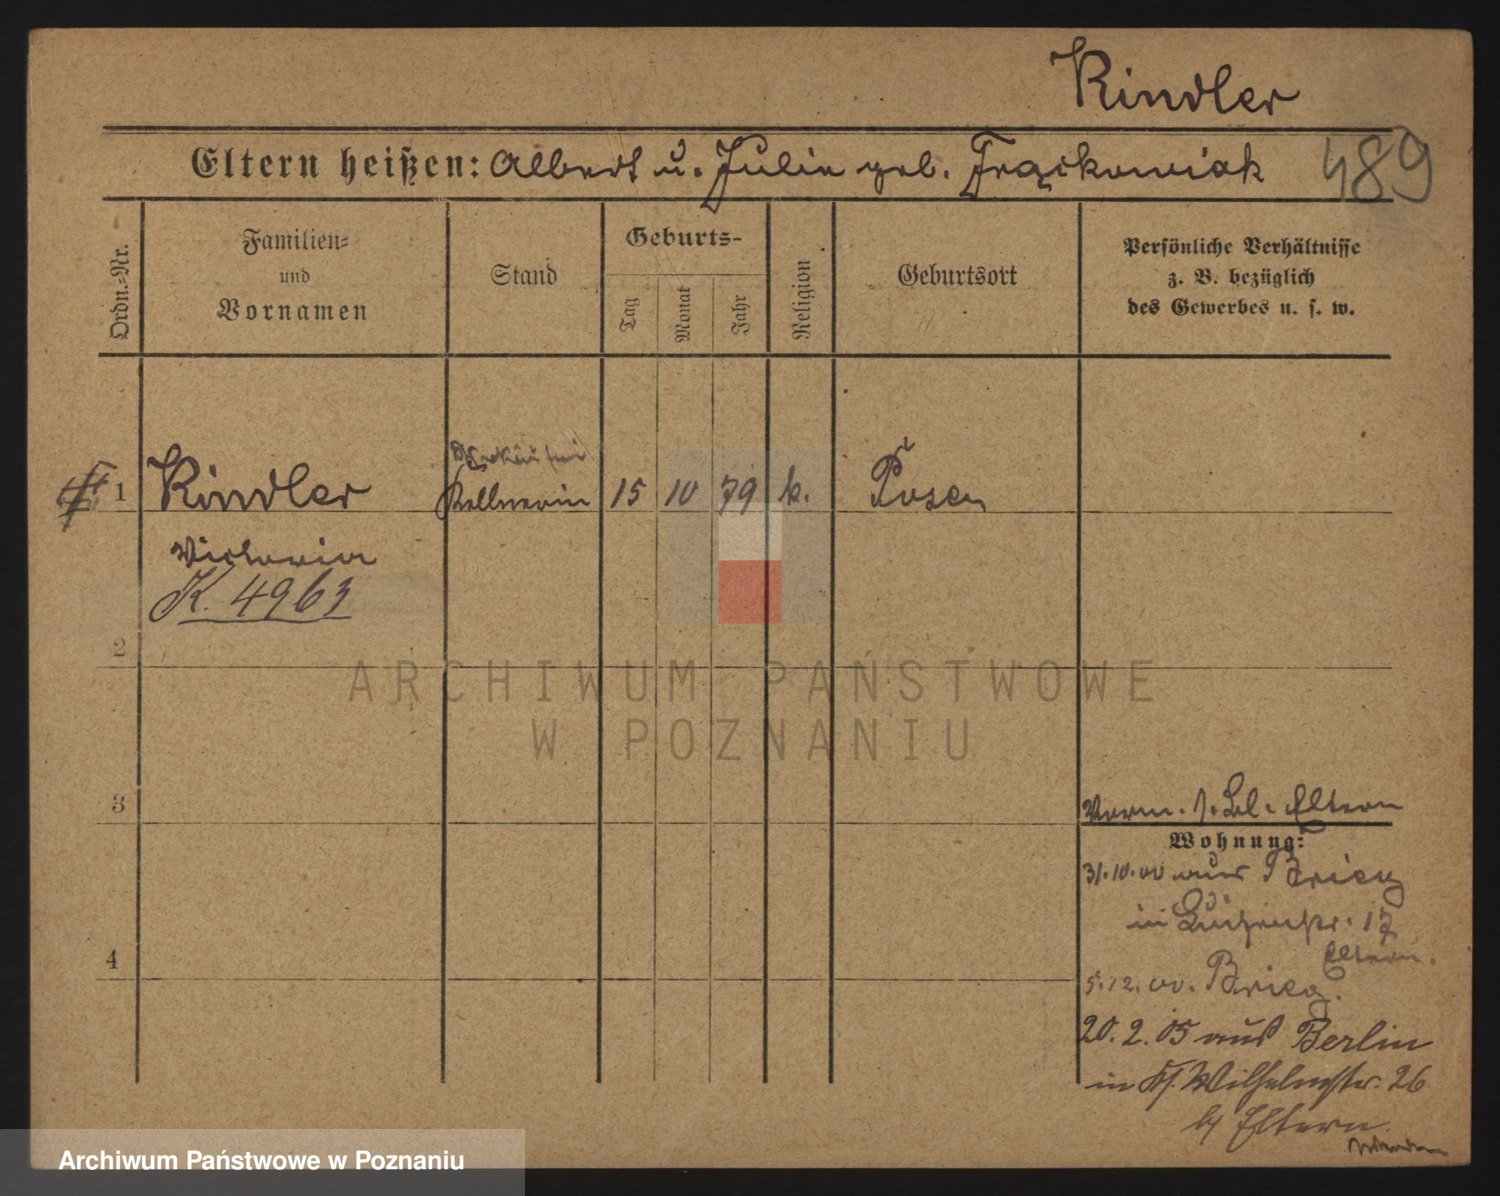 Kindler
Eltern heißen: Albert u. Julie geb. Frąckowiak
489
Ordn.-Nr.
Familien-
und
Vornamen
Stand
Geburts-
Tag
Monat
Jahr
Religion
Geburtsort
Persönliche Verhältnisse
z. B. bezüglich
des Gewerbes u. s. w.
1 Kindler
Kellnerin 15 10 79 k. Posen
Victoria
K. 4963
2
ARCHIWUM PAŃSTWOWE
W POZNANIU
3
Vorm. s. Bl. Eltern
Wohnung:
31.10.00 aus Brieg
in 17
Eltern.
4
5.12.00. Brieg.
20.2.05 aus Berlin
in Wilhelmstr. 26
b/ Eltern.
Archiwum Państwowe w Poznaniu